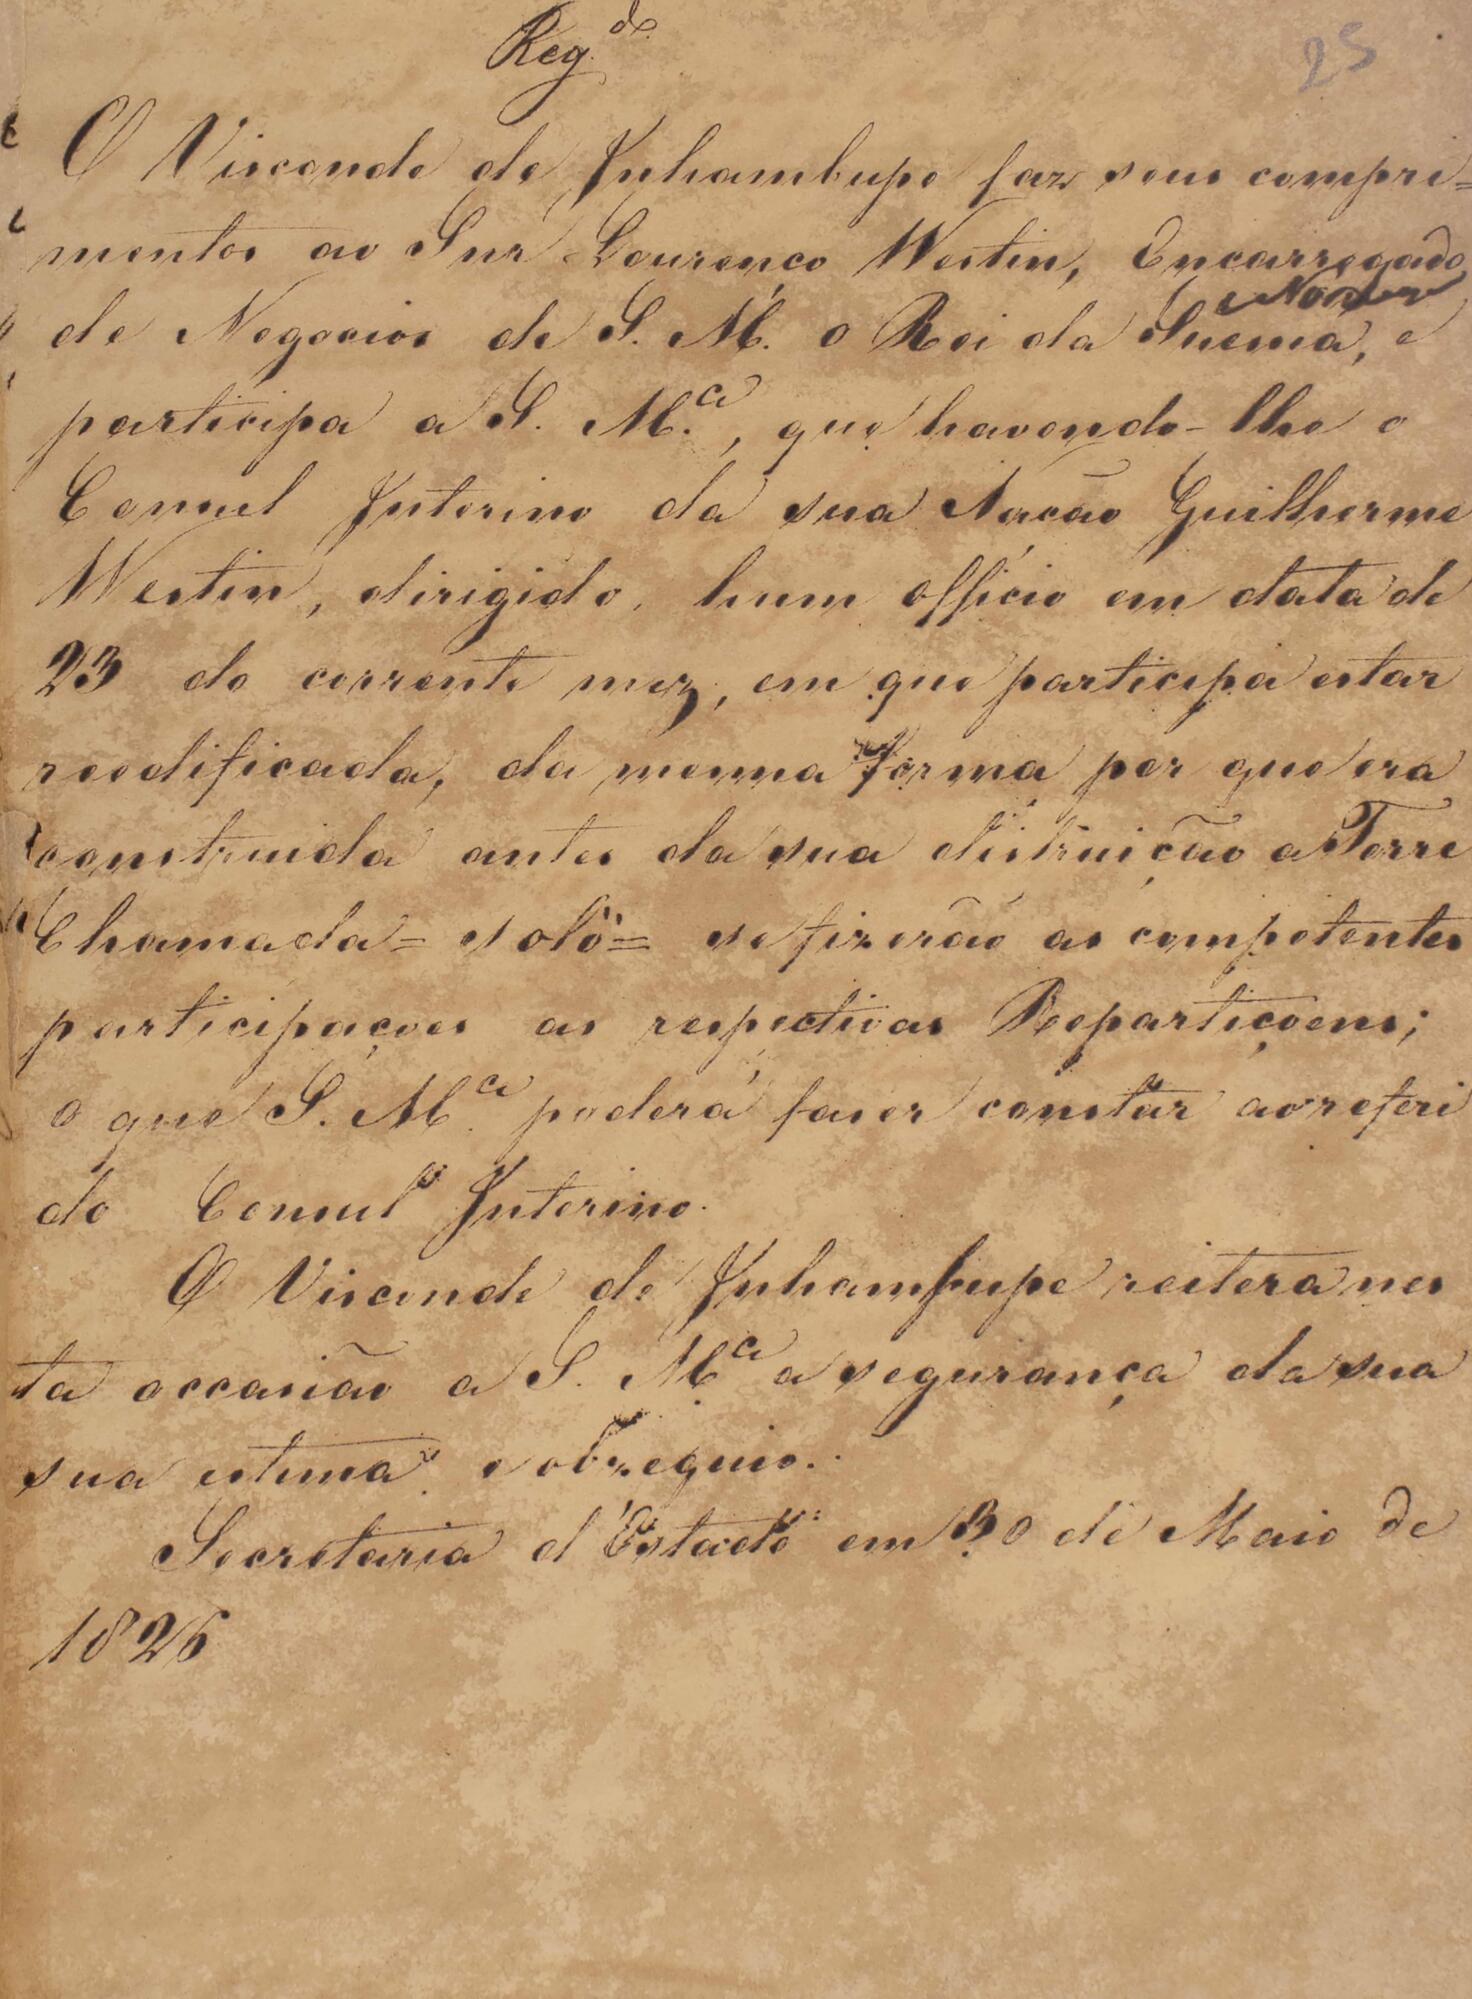 Reg.do
25
O Visconde de Inhambupe faz seus compri=
mentos ao Snr Lourenço Westin, Encarregado
de Negocios de S. M. o Rei da Suecia, e
participa a S. M.ce, que havendo-lhe o
Consul Interino da sua Nacão Guilherme
Westin, dirigido hum officio em data de
23 do corrente mez, em que participa estar
reedificada, da mesma forma por que era
construida antes da sua distruição a Torre
Chamada= solö= se fizerão as competentes
participaçoes as respectivas Repartiçoens;
o que S. M.ce poderá faser constar ao referi
do Consul Interino.
O Visconde de Inhambupe reitera nes
ta occasião a S. M.ce a segurança da sua
sua estima e obzequio.
Secretaria d'Estado em 30 de Maio de
1826